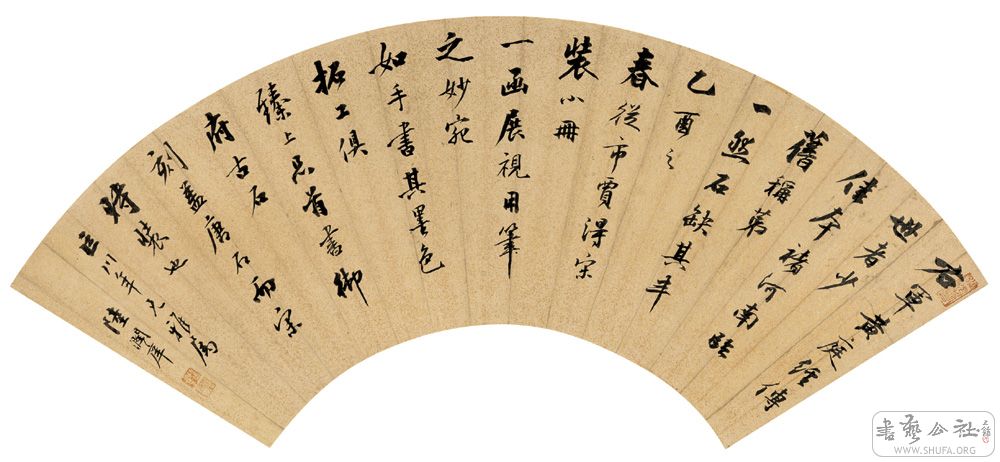 右軍黃庭經傳
世者少
佳本褚河南臨
舊稱第
一然石缺其半
乙酉之
春從市賈得宋
裝小冊
一函展視用筆
之妙宛
如手書其墨色
拓工俱
臻上品首書御
府古石
刻蓋唐石而宋
時裝也
巨川年兄雅屬
陸潤庠
書藝公社
WWW.SHUFA.ORG